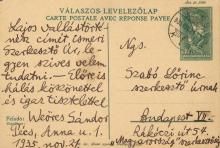 VÁLASZOS LEVELEZŐLAP
CARTE POSTALE AVEC RÉPONSE PAYÉE
Kajos vallástört-
nek címét ismeri
Szerkesztő Úr, le-
gyen szíves velem
tudatni. — Előre is
hálás köszönettel
és igaz tisztelettel
Weöres Sándor
Pécs, Anna u. 1.
1935. nov. 27.
Feladó:
Ngs.
Szabó Lőrinc
szerkesztő úrnak
Budapest VII.
Rákóczi út 54.
"Magyarország" szerkesztősége